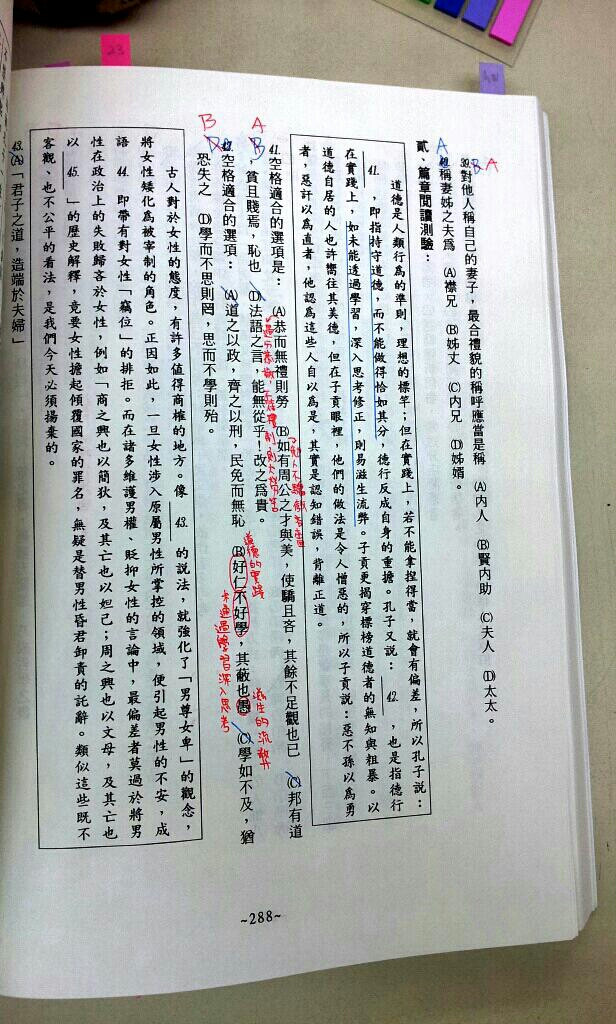 39.對他人稱自己的妻子，最合禮貌的稱呼應當是稱 (A)內人 (B)賢內助 (C)夫人 (D)太太。
B A
40.稱妻姊之夫為 (A)襟兄 (B)姊丈 (C)內兄 (D)姊婿。
A
貳、篇章閱讀測驗：
道德是人類行為的準則，理想的標竿；但在實踐上，若不能拿捏得當，就會有偏差，所以孔子說：
41. ，即指持守道德，而不能做得恰如其分，德行反成自身的重擔。孔子又說： 42. ，也是指德行
在實踐上，如未能透過學習，深入思考修正，則易滋生流弊。子貢更揭穿標榜道德者的無知與粗暴。以
道德自居的人也許嚮往其美德，但在子貢眼裡，他們的做法是令人憎惡的，所以子貢說：惡不孫以為勇
者，惡訐以為直者，他認為這些人自以為是，其實是認知錯誤，背離正道。
41.空格適合的選項是： (A)恭而無禮則勞 (B)如有周公之才與美，使驕且吝，其餘不足觀也已 (C)邦有道
，貧且賤焉，恥也 (D)法語之言，能無從乎！改之為貴。
A
B
42.空格適合的選項： (A)道之以政，齊之以刑，民免而無恥 (B)好仁不好學，其蔽也愚 (C)學如不及，猶
恐失之 (D)學而不思則罔，思而不學則殆。
B
道德的實踐
未通過學習深入思考
滋生的流弊
古人對於女性的態度，有許多值得商榷的地方。像 43. 的說法，就強化了「男尊女卑」的觀念，
將女性矮化為被宰制的角色。正因如此，一旦女性涉入原屬男性所掌控的領域，便引起男性的不安，成
語 44. 即帶有對女性「竊位」的排拒。而在諸多維護男權、貶抑女性的言論中，最偏差者莫過於將男
性在政治上的失敗歸咎於女性，例如「商之興也以簡狄，及其亡也以妲己；周之興也以文母，及其亡也
以 45. 」的歷史解釋，竟要女性擔起傾覆國家的罪名，無疑是替男性昏君卸責的託辭。類似這些既不
客觀、也不公平的看法，是我們今天必須揚棄的。
43.(A)「君子之道，造端於夫婦」
~288~
23